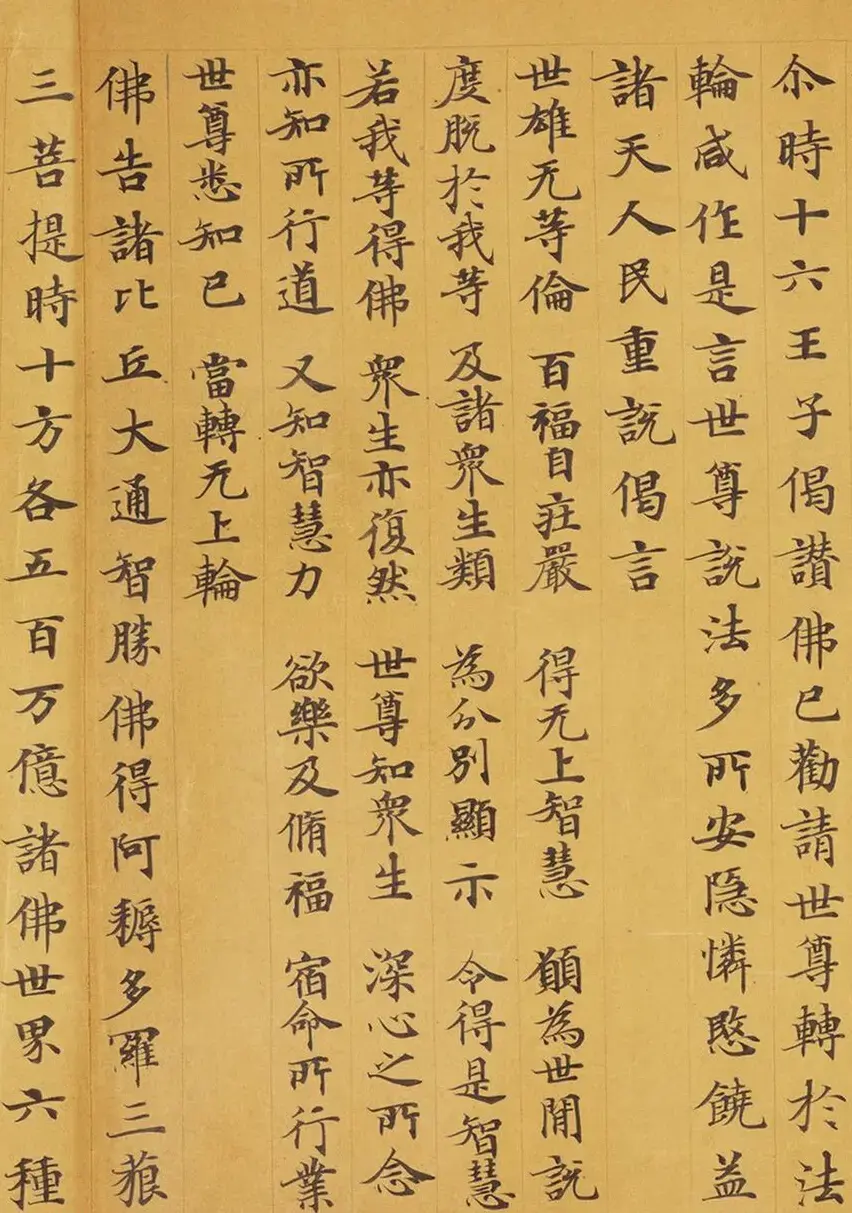 尒時十六王子偈讃佛已勸請世尊轉於法
輪咸作是言世尊說法多所安隱憐愍饒益
諸天人民重說偈言
世雄无等倫 百福自莊嚴 得无上智慧 願為世間說
度脫於我等 及諸衆生類 為分別顯示 令得是智慧
若我等得佛 衆生亦復然 世尊知衆生 深心之所念
亦知所行道 又知智慧力 欲樂及脩福 宿命所行業
世尊悉知已 當轉无上輪
佛告諸比丘大通智勝佛得阿耨多羅三藐
三菩提時十方各五百万億諸佛世界六種